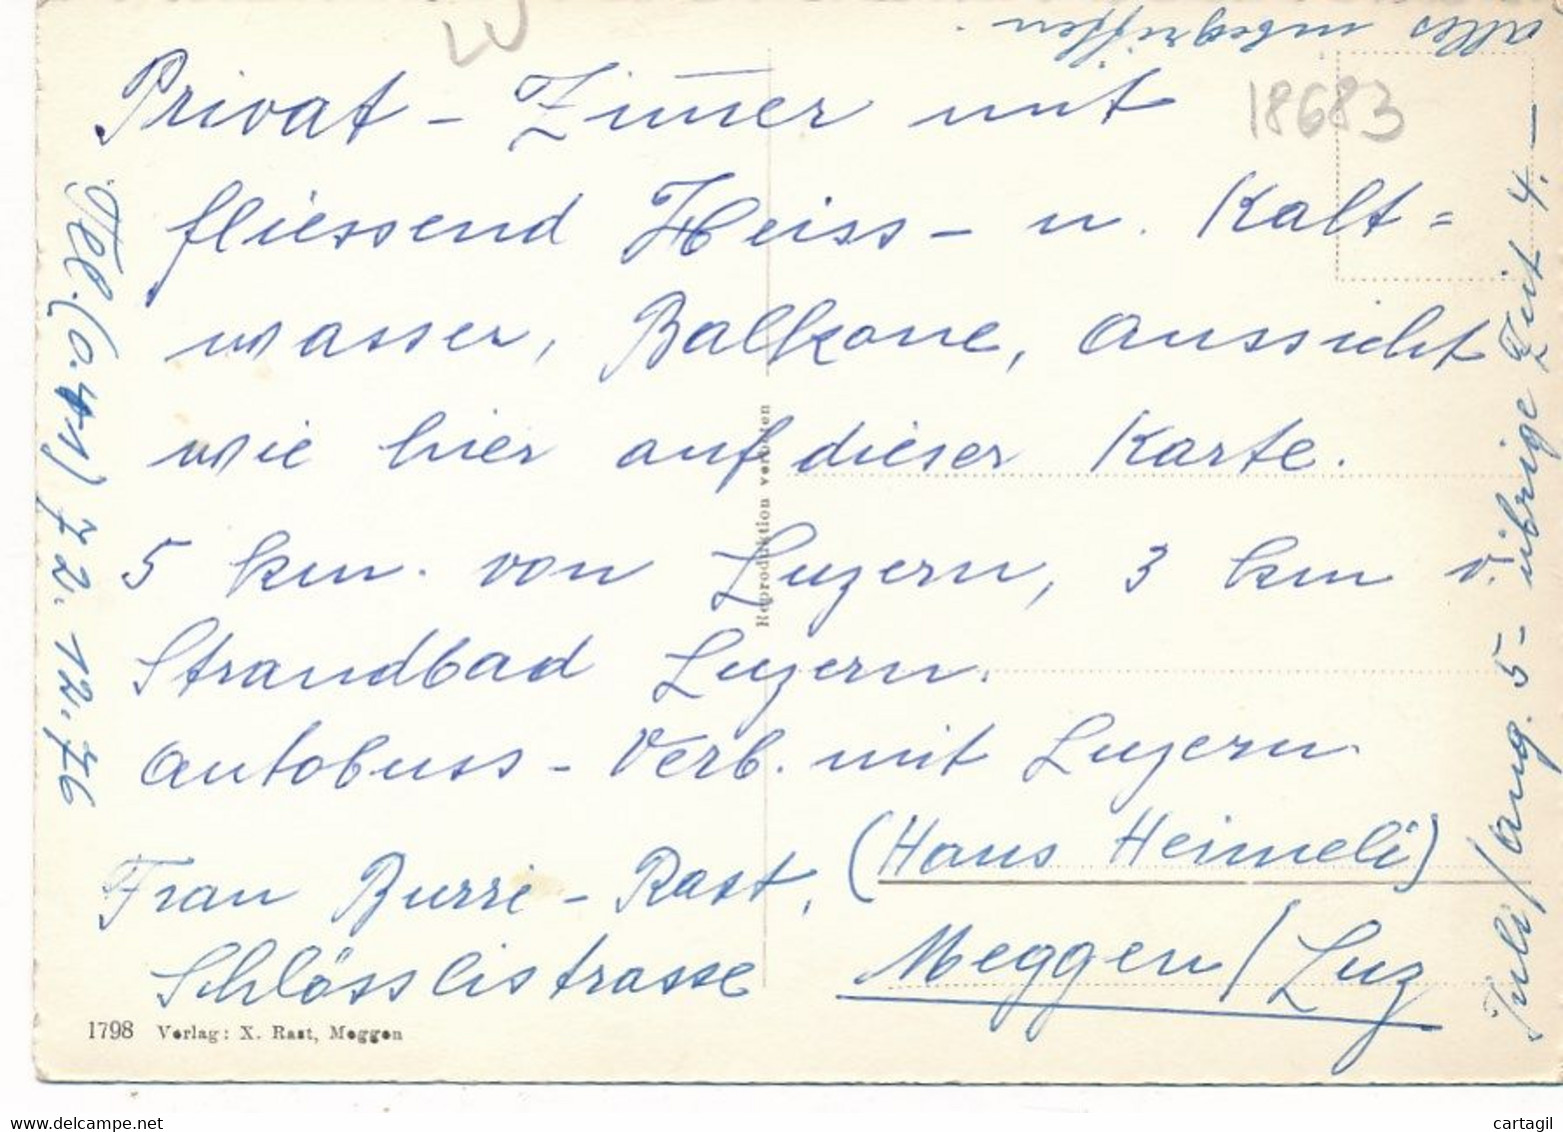 LU
18683
Privat - Zimmer mit
fliessend Heiss - u. Kalt=
wasser, Balkone, Aussicht
wie hier auf dieser Karte.
5 km. von Luzern, 3 km v.
Strandbad Luzern.
Autobuss - Verb. mit Luzern.
Frau Burri - Rast, (Haus Heimeli)
Schlösslistrasse Meggen / Luz
Tel. (0.41) 72.12.76
Juli/Aug. 5- übrige Zeit 4.-
alles inbegriffen.
Reproduktion verboten
1798 Verlag: X. Rast, Meggen
www.delcampe.net
cartagil